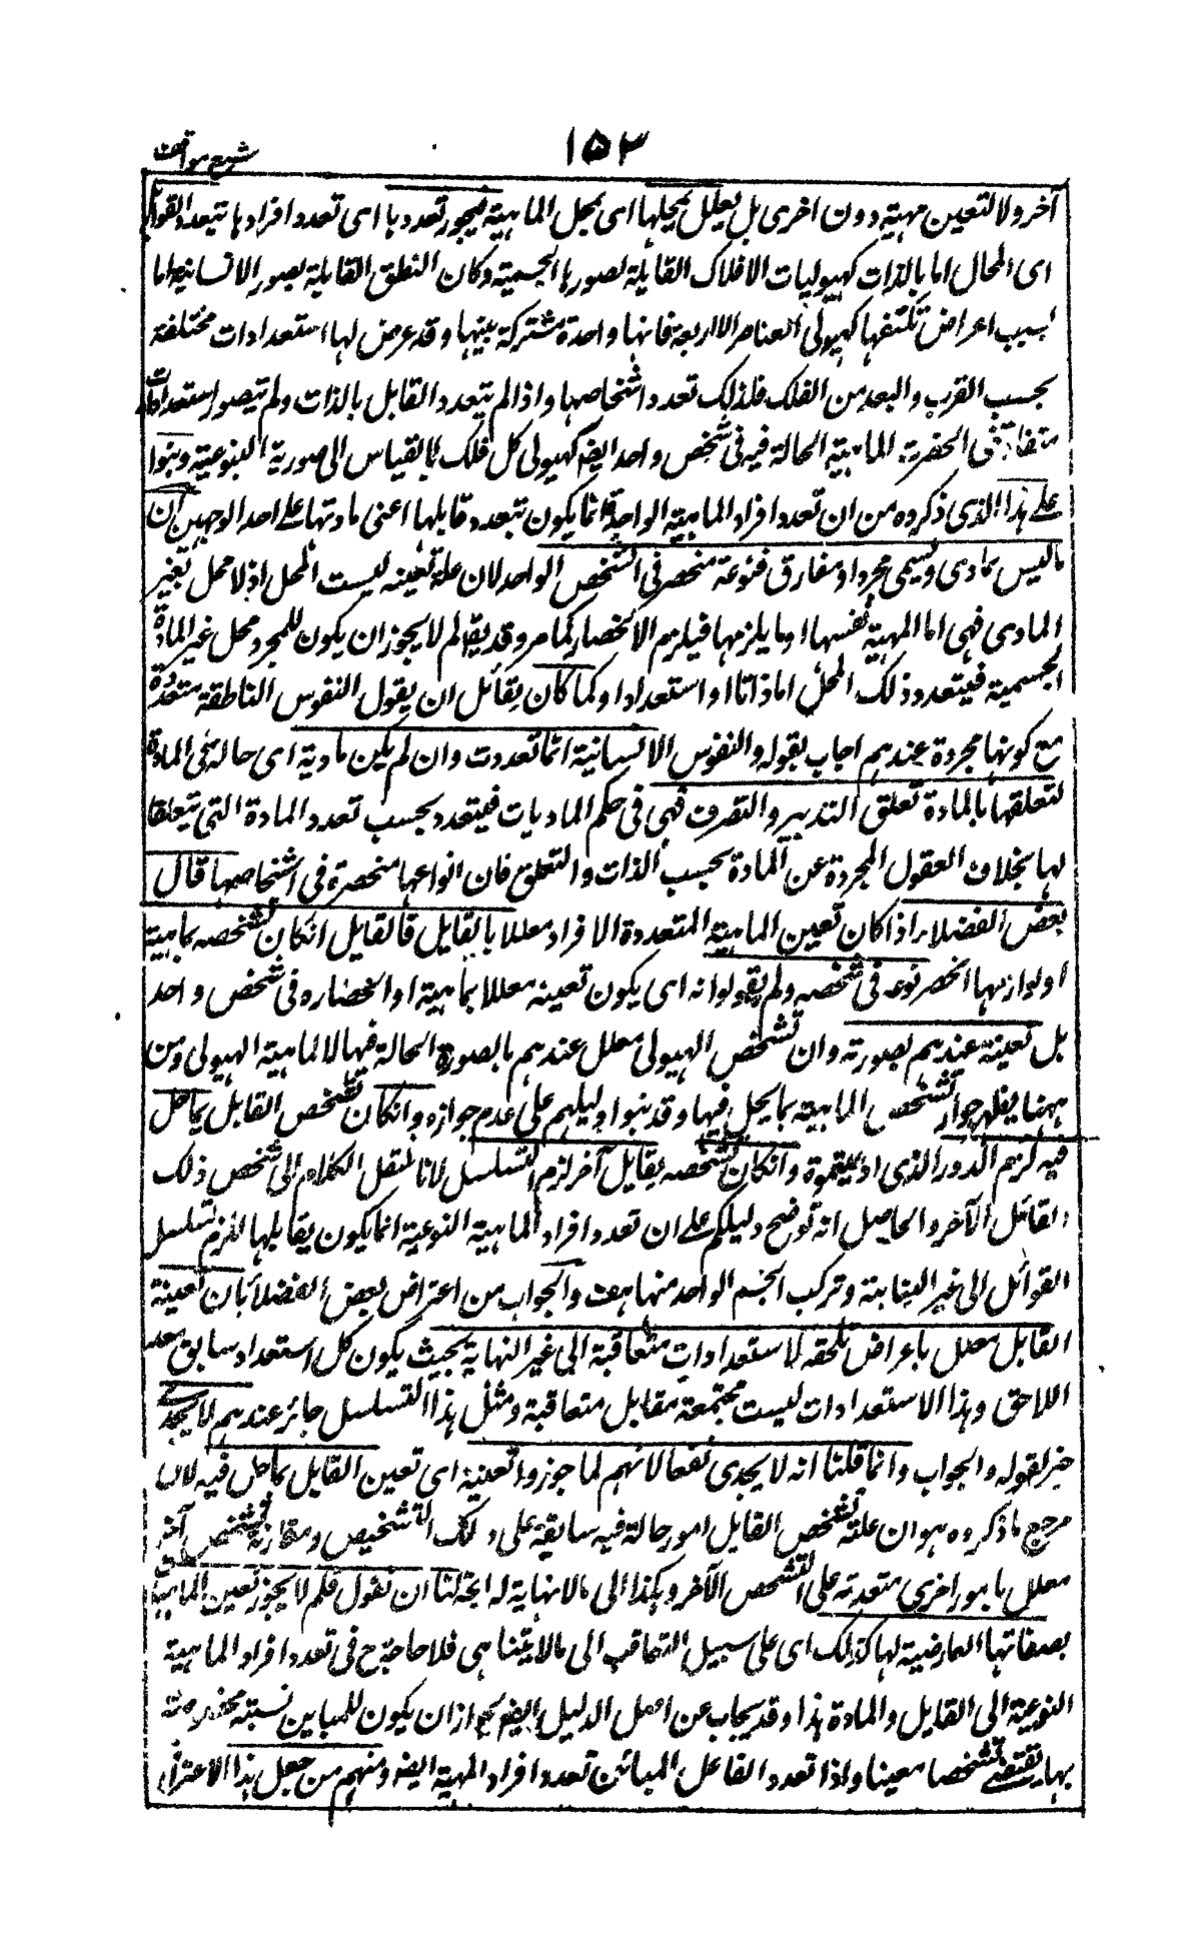 ١٥٣
شرح مواقف
آخر ولا لتعين مهية دون اخرى بل يعلل بمحلها اى بمحل الماهية فيجوز تعددها اى تعدد افرادها بتعدد القوابل
اى المحال اما بالذات كهيوليات الافلاك القابلة لصورها الجسمية وكان النطق القابلة بصور الانسانية واما
بسبب اعراض تكتنفها كهيولى العناصر الاربعة فانها واحدة مشتركة بينها وقد عرض لها استعدادات مختلفة
بحسب القرب والبعد من الفلك فلذلك تعدد اشخاصها واذا لم يتعدد القابل بالذات ولم يتصور استعدادات
متفاوتة انحصرت الماهية الحالة فيه فى شخص واحد ايضا كهيولى كل فلك بالقياس الى صورية النوعية وبنوا
على هذا الذى ذكروه من ان تعدد افراد الماهية الواحدة انما يكون بتعدد قابلها اعنى مادتها على احد الوجهين ان
ما ليس بمادى ويسمى مجردا ومفارق فنوعه منحصر فى الشخص الواحد لان علة تعينه ليست المحل اذ لا محل بغير
المادى فهى اما المهية نفسها او ما يلزمها فيلزم الانحصار كما مر وقد يقال لم لا يجوز ان يكون للمجرد محل غير المادة
الجسمية فيتعدد ذلك المحل اما ذاتا او استعدادا وكما كان لقائل ان يقول النفوس الناطقة متعددة
مع كونها مجردة عندهم اجاب بقوله والنفوس الانسانية انما تعددت وان لم يكن مادية اى حالة فى المادة
لتعلقها بالمادة تعلق التدبير والتصرف فهى فى حكم الماديات فيتعدد بحسب تعدد المادة التى يتعلقا
لها بخلاف العقول المجردة عن المادة بحسب الذات والتعلق فان انواعها منحصرة فى اشخاصها قال
بعض الفضلاء اذا كان تعين الماهية المتعددة الافراد معللا بالقابل فالقابل انكان تشخصه بماهية
او لوازمها انحصر نوعه فى شخصه ولم يقولوا انه اى يكون تعينه معللا بماهية او انحضاره فى شخص واحد
بل تعينه عندهم بصورته وان تشخص الهيولى معلل عندهم بالصورة الحالة فيها لا لماهية الهيولى ومن
ههنا يظهر جواز تشخص الماهية بما يحل فيها وقد بنوا دليلهم على عدم جوازه وانكان تشخص القابل بما حل
فيه لزم الدور الذى ادعيتموه وانكان تشخصه بقابل آخر لزم التسلسل لانا ننقل الكلام الى تشخص ذلك
القائل الآخر والحاصل انه لو صح دليلكم على ان تعدد افراد الماهية النوعية انما يكون بقابلها للزم تسلسل
القوائل الى غير النهاية وتركب الجسم الواحد منها هف والجواب من اعتراض بعض الفضلاء بان تعينة
القابل معلل باعراض تلحقه لاستعدادات متعاقبة الى غير النهاية بحيث يكون كل استعداد سابق معد
اللاحق وهذا الاستعدادات ليست مجتمعة مقابل متعاقبة ومثل هذا التسلسل جائز عندهم لا يجدى
خبر لقوله والجواب وانما قلنا انه لا يجدى نفعا لانهم لما جوزوا تعينه اى تعين القابل بما حل فيه لان
مرجع ما ذكروه هو ان علة تشخص القابل امور حالة فيه سابقة على ذلك التشخيص ومقارنة لتشخص آخر
معلل بامور اخرى متعدية على التشخص الآخر وهكذا الى ما لا نهاية له اتجه لنا ان نقول فلم لا يجوز تعين الماهية
بصفاتها العارضية لها كذلك اى على سبيل التعاقب الى ما لا يتناهى فلا حاجة ح فى تعدد افراد الماهية
النوعية الى القابل والمادة هذا وقد يجاب عن اصل الدليل ايضا بجواز ان يكون للمباين نسبة مخصوصة
بها يقتضى تشخصا معينا واذا تعدد الفاعل المبائن تعدد افراد المهية ايضا ومنهم من جعل هذا الاعتراض